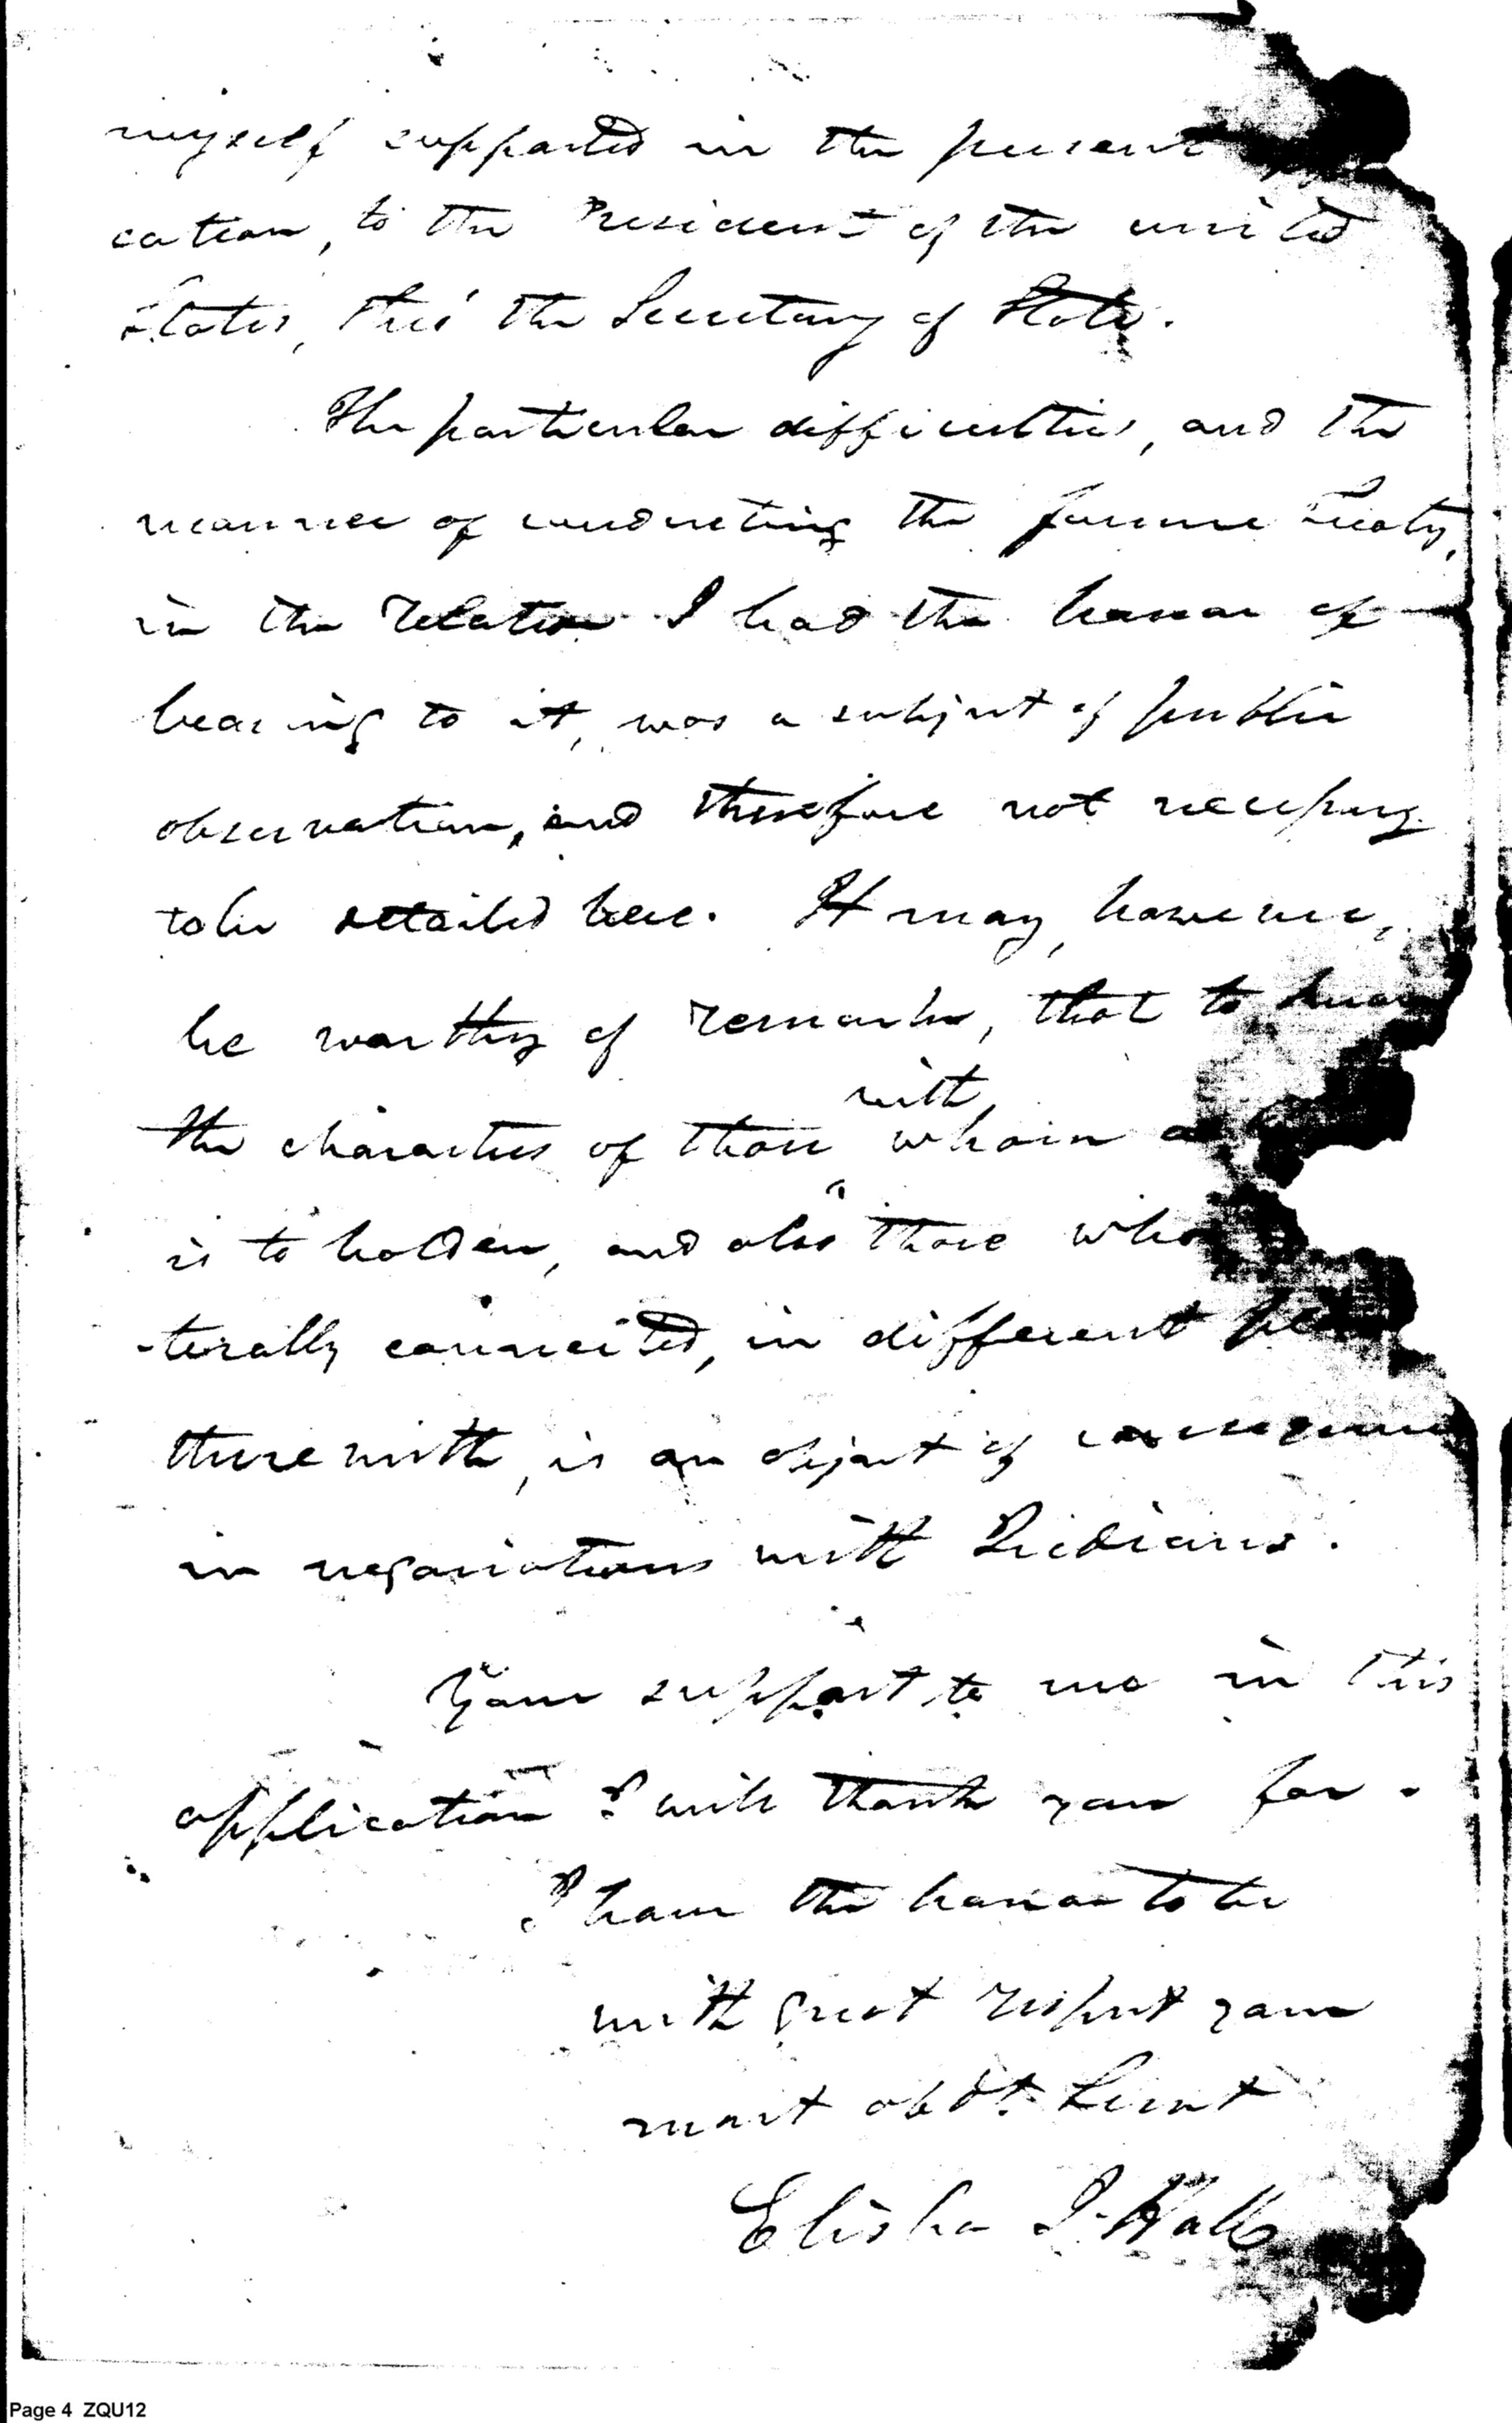 myself supported in the present
cation, to the President of the united
States, thro' the Secretary of State.
The particular difficulties, and the
manner of conducting the former Treaty,
in the relation I had the honor of
bearing to it, was a subject of public
observation, and therefore not necessary
to be detailed here. It may, however,
be worthy of remark, that to know
with
the characters of those whom a
is to holden, and also those who
-terally connected, in different
therewith, is an object of consequence
in negociations with Indians.
Your support to me in this
application I will thank you for.
I have the honor to be
with great respect your
most obdt. Servt
Elisha I. Hall
Page 4 ZQU12